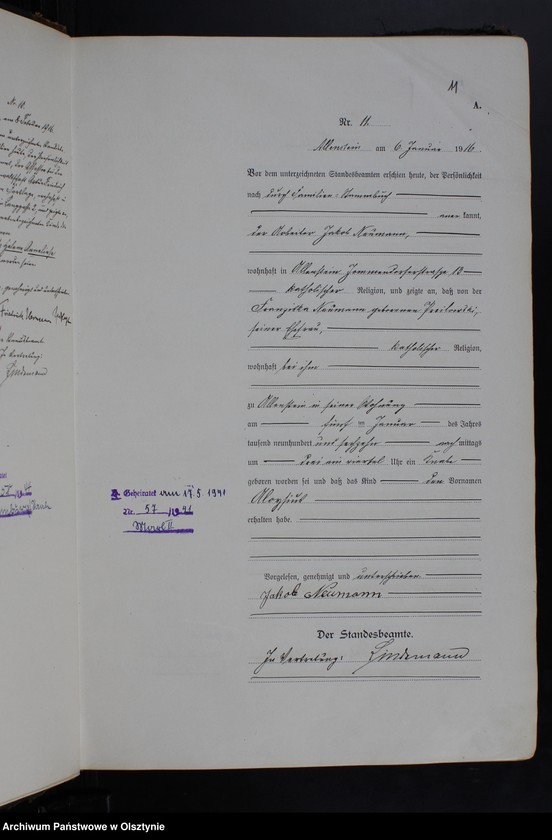 11
A.
Nr. 11.
Allenstein am 6. Januar 1916.
Vor dem unterzeichneten Standesbeamten erschien heute, der Persönlichkeit
nach durch Familien-Stammbuch
erkannt,
der Arbeiter Jakob Neumann,
wohnhaft in Allenstein, Jommendorferstrasse 13
katholischer Religion, und zeigte an, daß von der
Franziska Neumann geborenen
seiner Ehefrau,
katholischer Religion,
wohnhaft bei ihm
zu Allenstein in seiner Wohnung
am fünften Januar des Jahres
tausend neunhundert und sechzehn nachmittags
um drei ein viertel Uhr ein Knabe
geboren worden sei und daß das Kind den Vornamen
Aloysius
erhalten habe.
Vorgelesen, genehmigt und unterschrieben
Jakob Neumann
Der Standesbeamte.
In Vertretung: Lindemann
Geheiratet am 17.5.1941
Nr. 57/1941
Nr. 10.
In Vertretung:
Lindemann
Archiwum Państwowe w Olsztynie